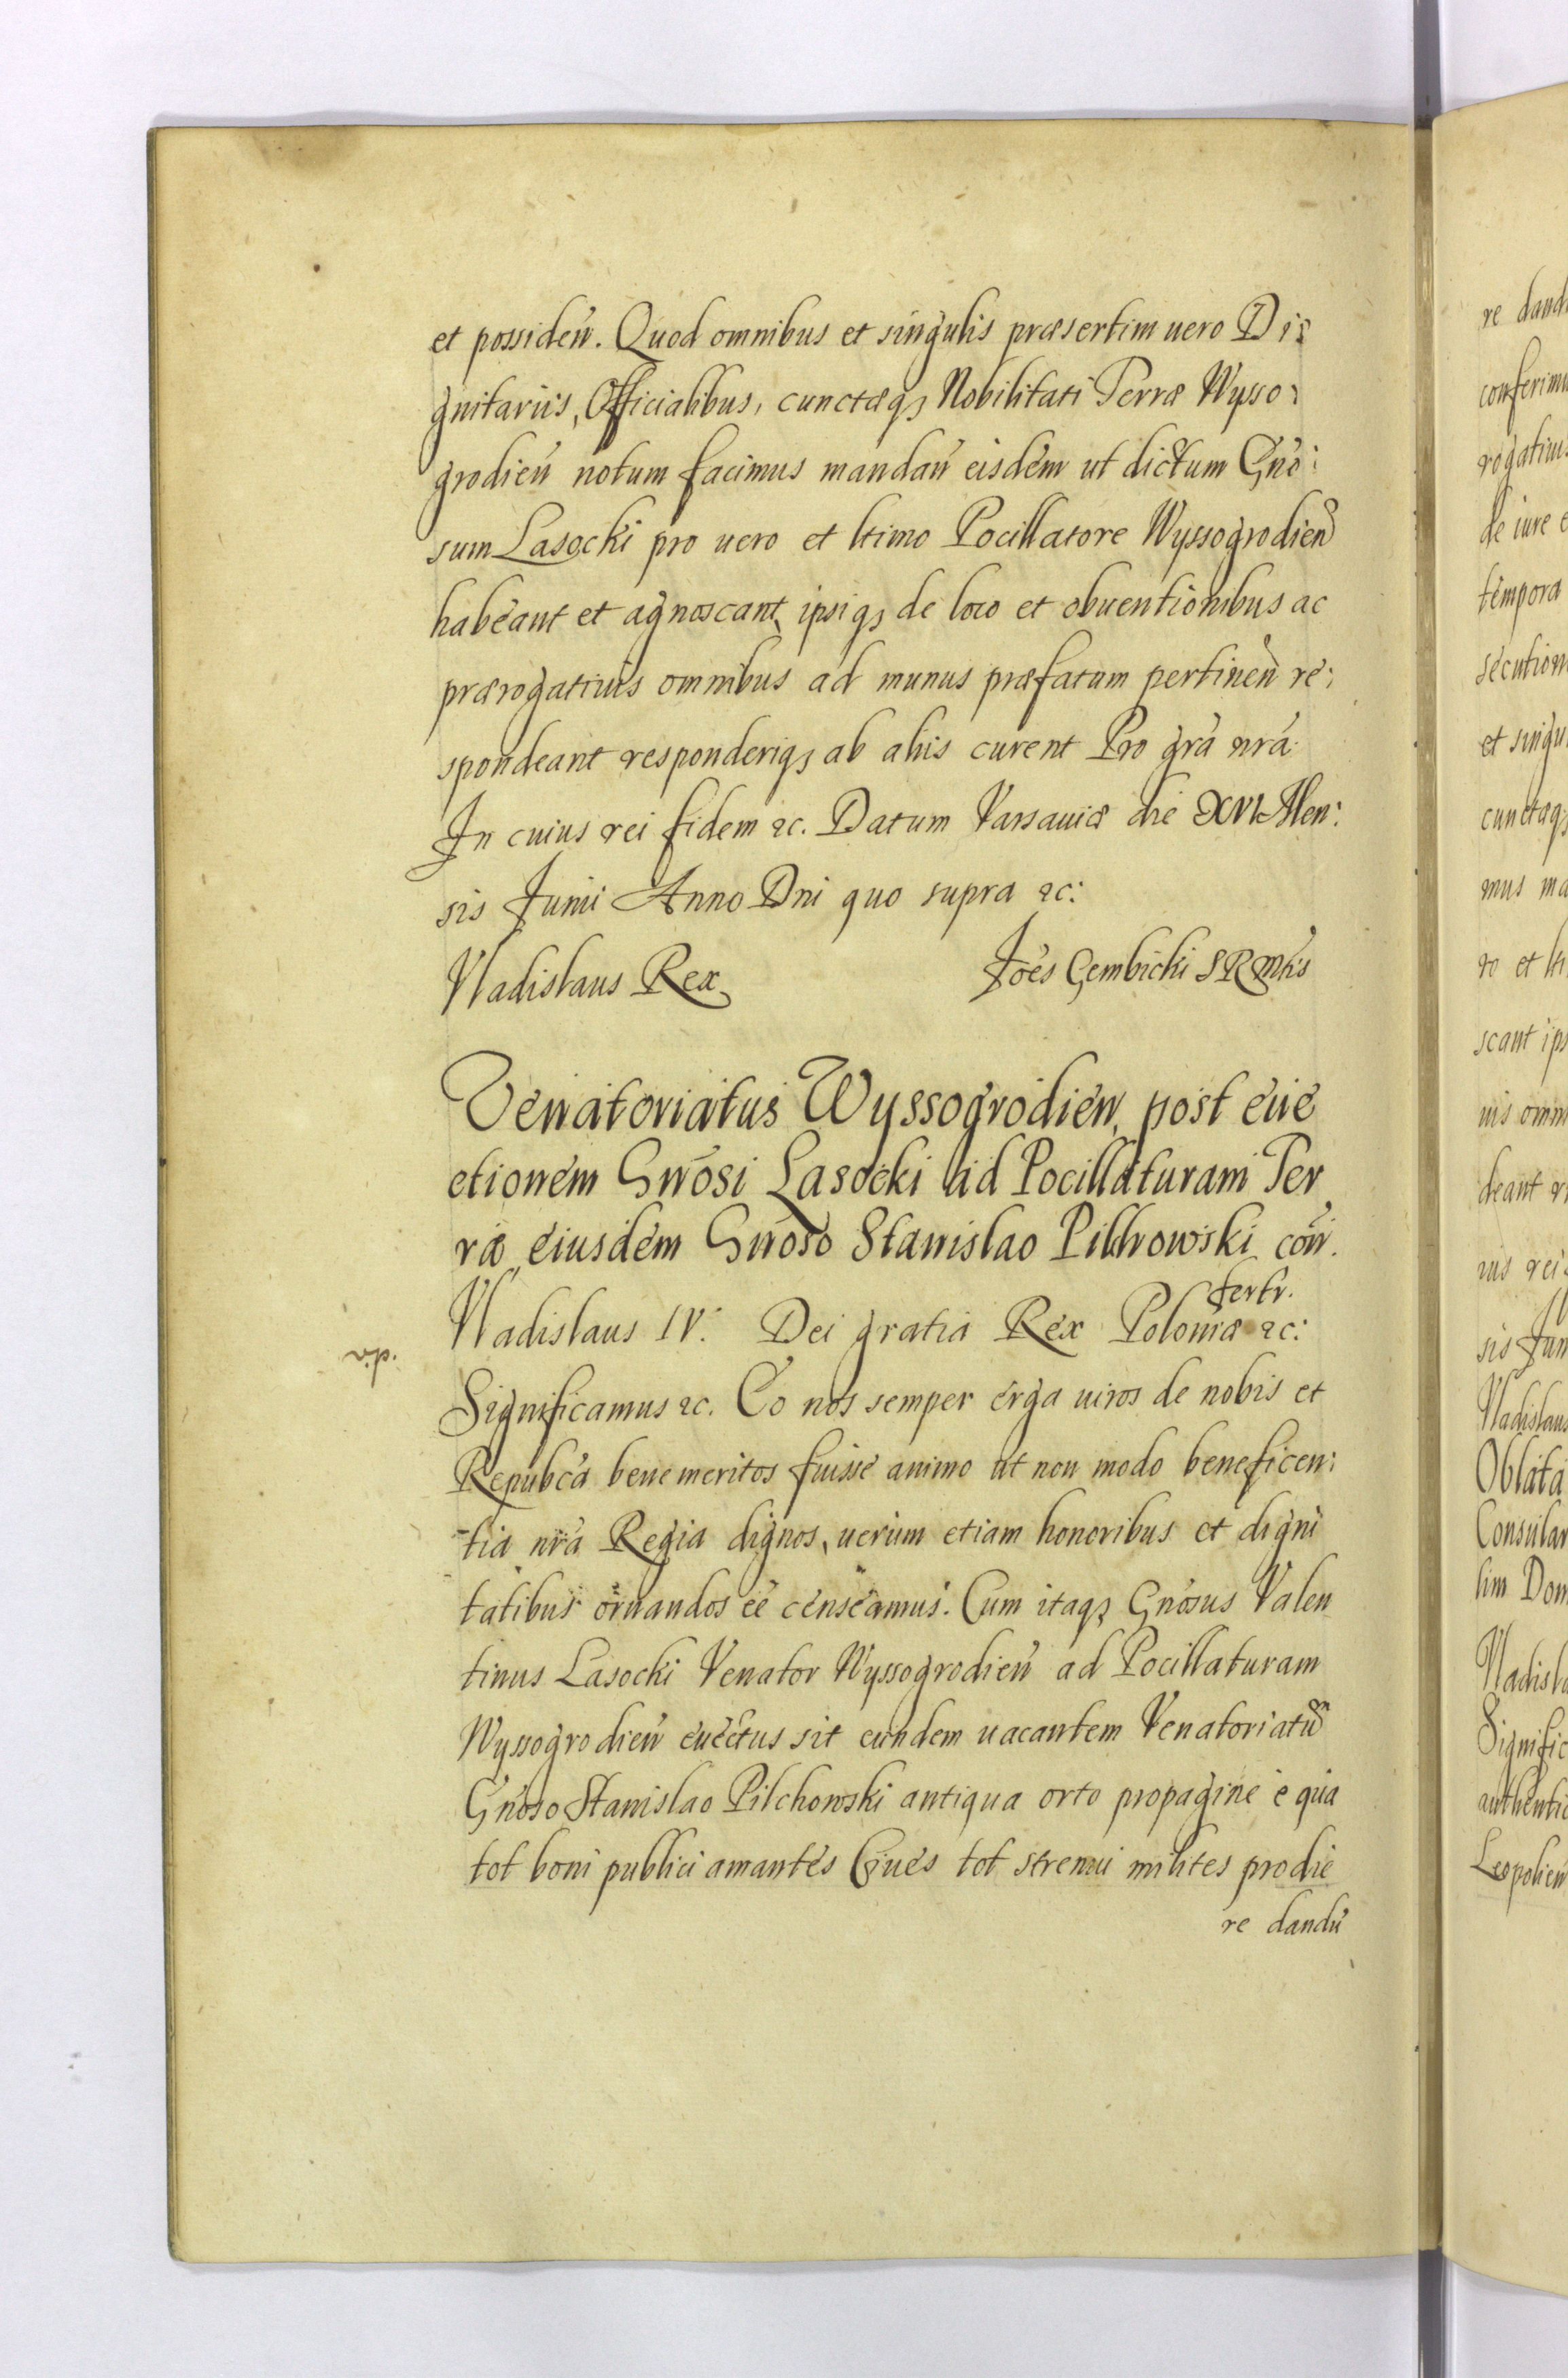 et possideń. Quod omnibus et singulis præsertim uero Di:
gnitariis, Officialibus, cunctæqȝ Nobilitati Terræ Wysso:
grodień notum facimus mandań eisdem ut dictum Gno:
sum Lasocki pro uero et ltimo Pocillatore Wyssogrodień
habeant et agnoscant, ipsiqȝ de loco et obuentionibus ac
prærogatiuis omnibus ad munus præfatum pertineń re:
spondeant responderiqȝ ab aliis curent Pro gra nra
In cuius rei fidem ꝛc. Datum Varsauiæ die XVI Men:
sis Junii Anno Dni quo supra ꝛc:
Vladislaus Rex
Joes Gembicki SRMtis
Venatoriatus Wyssogrodień, post eue
ctionem Gnosi Lasocki ad Pocillaturam Ter
ræ eiusdem Gnoso Stanislao Pilchowski con
fertr.
Vladislaus IV. Dei gratia Rex Poloniæ ꝛc:
Significamus ꝛc. Eo nos semper erga uiros de nobis et
Repubca bene meritos fuisse animo ut non modo beneficen:
tia nra Regia dignos, uerum etiam honoribus et digni
tatibus ornandos ee censeamus. Cum itaqȝ Gnosus Valen
tinus Lasocki Venator Wyssogrodień ad Pocillaturam
Wyssogrodień euectus sit eundem uacantem Venatoriatũ
Gnoso Stanislao Pilchowski antiqua orto propagine e qua
tot boni publici amantes Ciues tot strenui milites prodie
re dandũ
re dand
conferimu
rogatiuis
de iure e
tempora
secution
et singu
cunctaqȝ
mus ma
ro et lti
scant ips
uis omn
deant r
ius rei
sis Jun
Vladislaus
Oblata
Consular
lim Dom
Vladisla
Signific
authentic
Leopolień